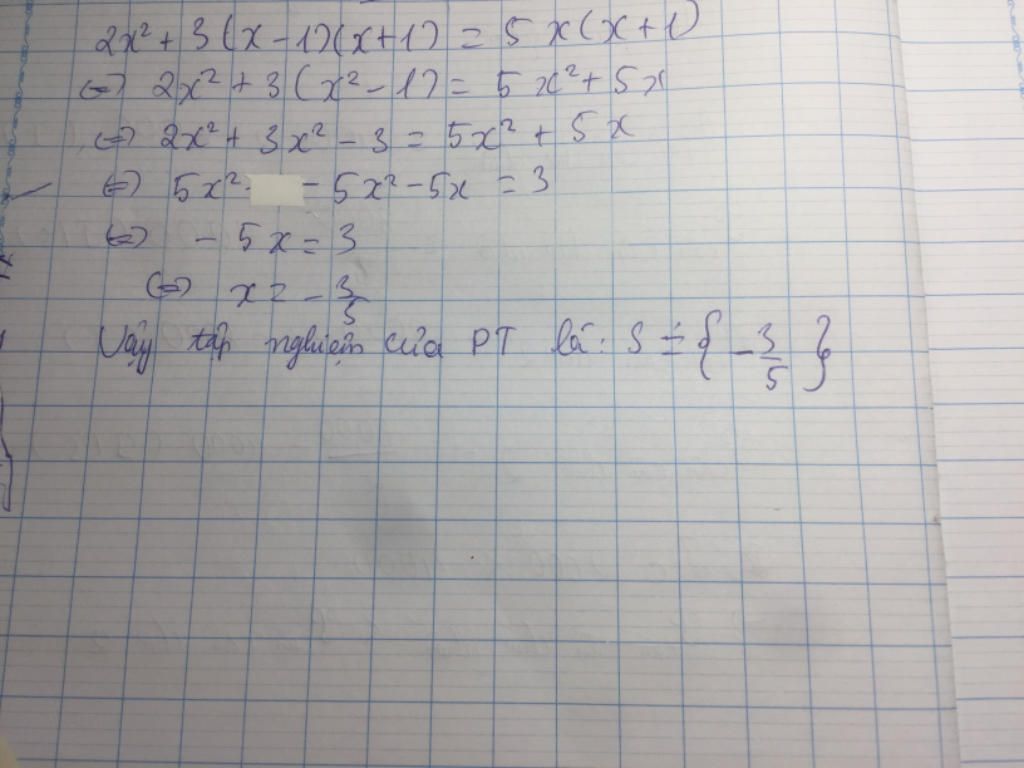 2x² + 3(x-1)(x+1) = 5x(x+1)
⇔ 2x² + 3(x²-1) = 5x² + 5x
⇔ 2x² + 3x² - 3 = 5x² + 5x
⇔ 5x² - 5x² - 5x = 3
⇔ - 5x = 3
⇔ x = -3/5
Vậy tập nghiệm của PT là: S = {-3/5}